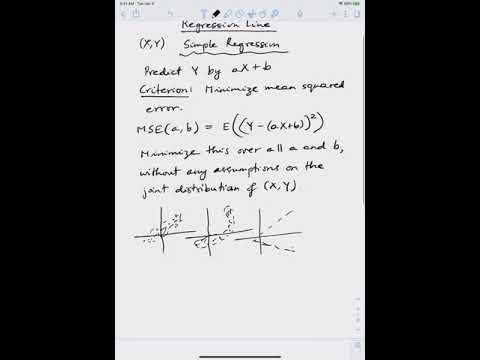 Regression Line
(X,Y) Simple Regression
Predict Y by aX+b
Criterion: Minimize mean squared
error.
MSE(a,b) = E((Y-(aX+b))²)
Minimize this over all a and b,
without any assumptions on the
joint distribution of (X,Y)